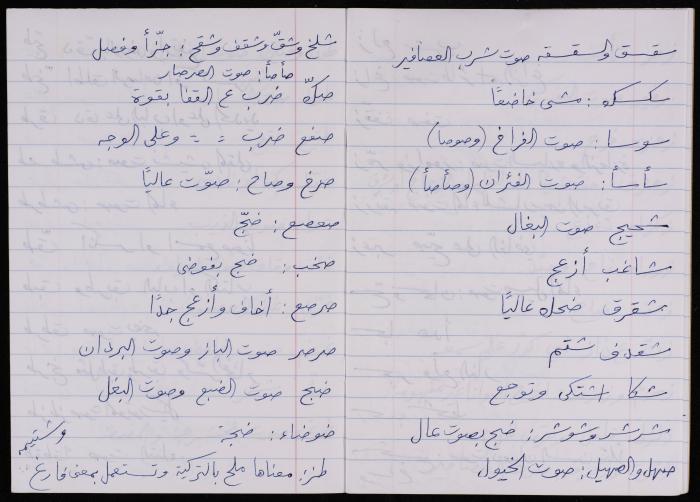 سقسق والسقسقه صوت شرب العصافير
سكسكه : مشى خاضعًا
سوسا : صوت الفراخ (وصوصا)
سأسأ : صوت الفئران (وصأصأ)
شحيج صوت البغال
شاغب أزعج
شقرق ضحك عاليًا
شقدف شتم
شكا اشتكى وتوجع
شرشر وشوشر : ضج بصوت عال
صهل والصهيل : صوت الخيول
شلخ وشقّ وشقف وشقح : جزّأ وفصل
صأصأ : صوت الصرصار
صكّ ضرب ع القفا بقوة
صفع ضرب = = وعلى الوجه
صرخ وصاح : صوّت عاليًا
صعصع : ضجّ
صخب : ضج بفوضى
صرصع : أخاف وأزعج جدًا
صرصر صوت الباز وصوت البردان
ضبح صوت الضبع وصوت البغل
ضوضاء : ضجة
طز : معناها ملح بالتركية وتستعمل بمعنى فارغ
وشتيمه